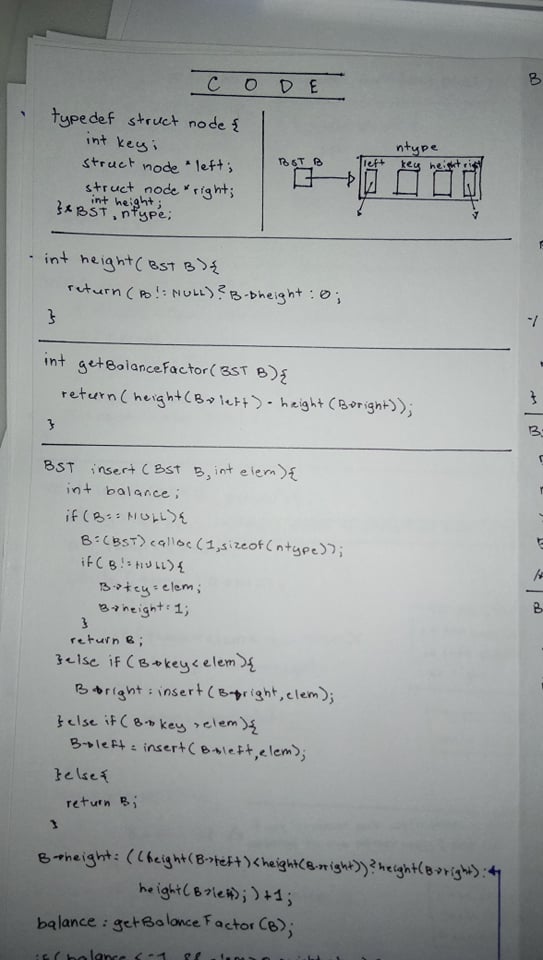 C O D E
typedef struct node {
int key;
struct node *left;
struct node *right;
int height;
}* BST, ntype;
ntype
BST B
left key height right
int height(BST B){
return(B != NULL)? B->height : 0;
}
int getBalanceFactor(BST B){
return(height(B->left) - height(B->right));
}
BST insert(BST B, int elem){
int balance;
if(B == NULL){
B=(BST)calloc(1,sizeof(ntype));
if(B != NULL){
B->key=elem;
B->height=1;
}
return B;
}else if(B->key<elem){
B->right = insert(B->right,elem);
}else if(B->key >elem){
B->left = insert(B->left,elem);
}else{
return B;
}
B->height= ((height(B->left)<height(B->right))?height(B->right):
height(B->left);)+1;
balance = getBalanceFactor(B);
if(balance <-1 &&
B
}
B
B